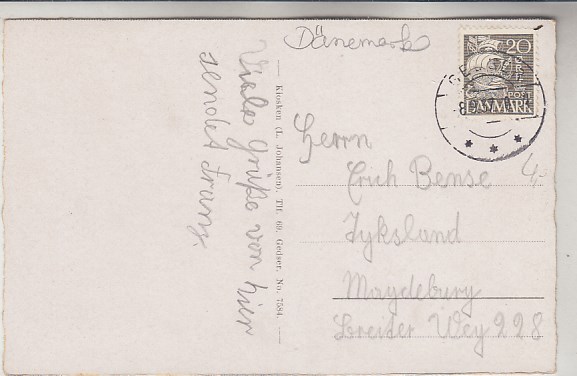 Dänemark
20
POST
DANMARK
Viele Grüße von hier
sendet Franz.
— Kiosken (L. Johansen). Tlf. 69. Gedser. No. 7584. —
Herrn
Erich Bense
Magdeburg
Breiter Weg 228
4.-